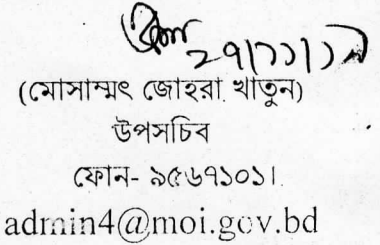 ২৭/১১/১৯
(মোসাম্মৎ জোহরা খাতুন)
উপসচিব
ফোন- ৯৫৬৭১০১।
admin4@moi.gov.bd